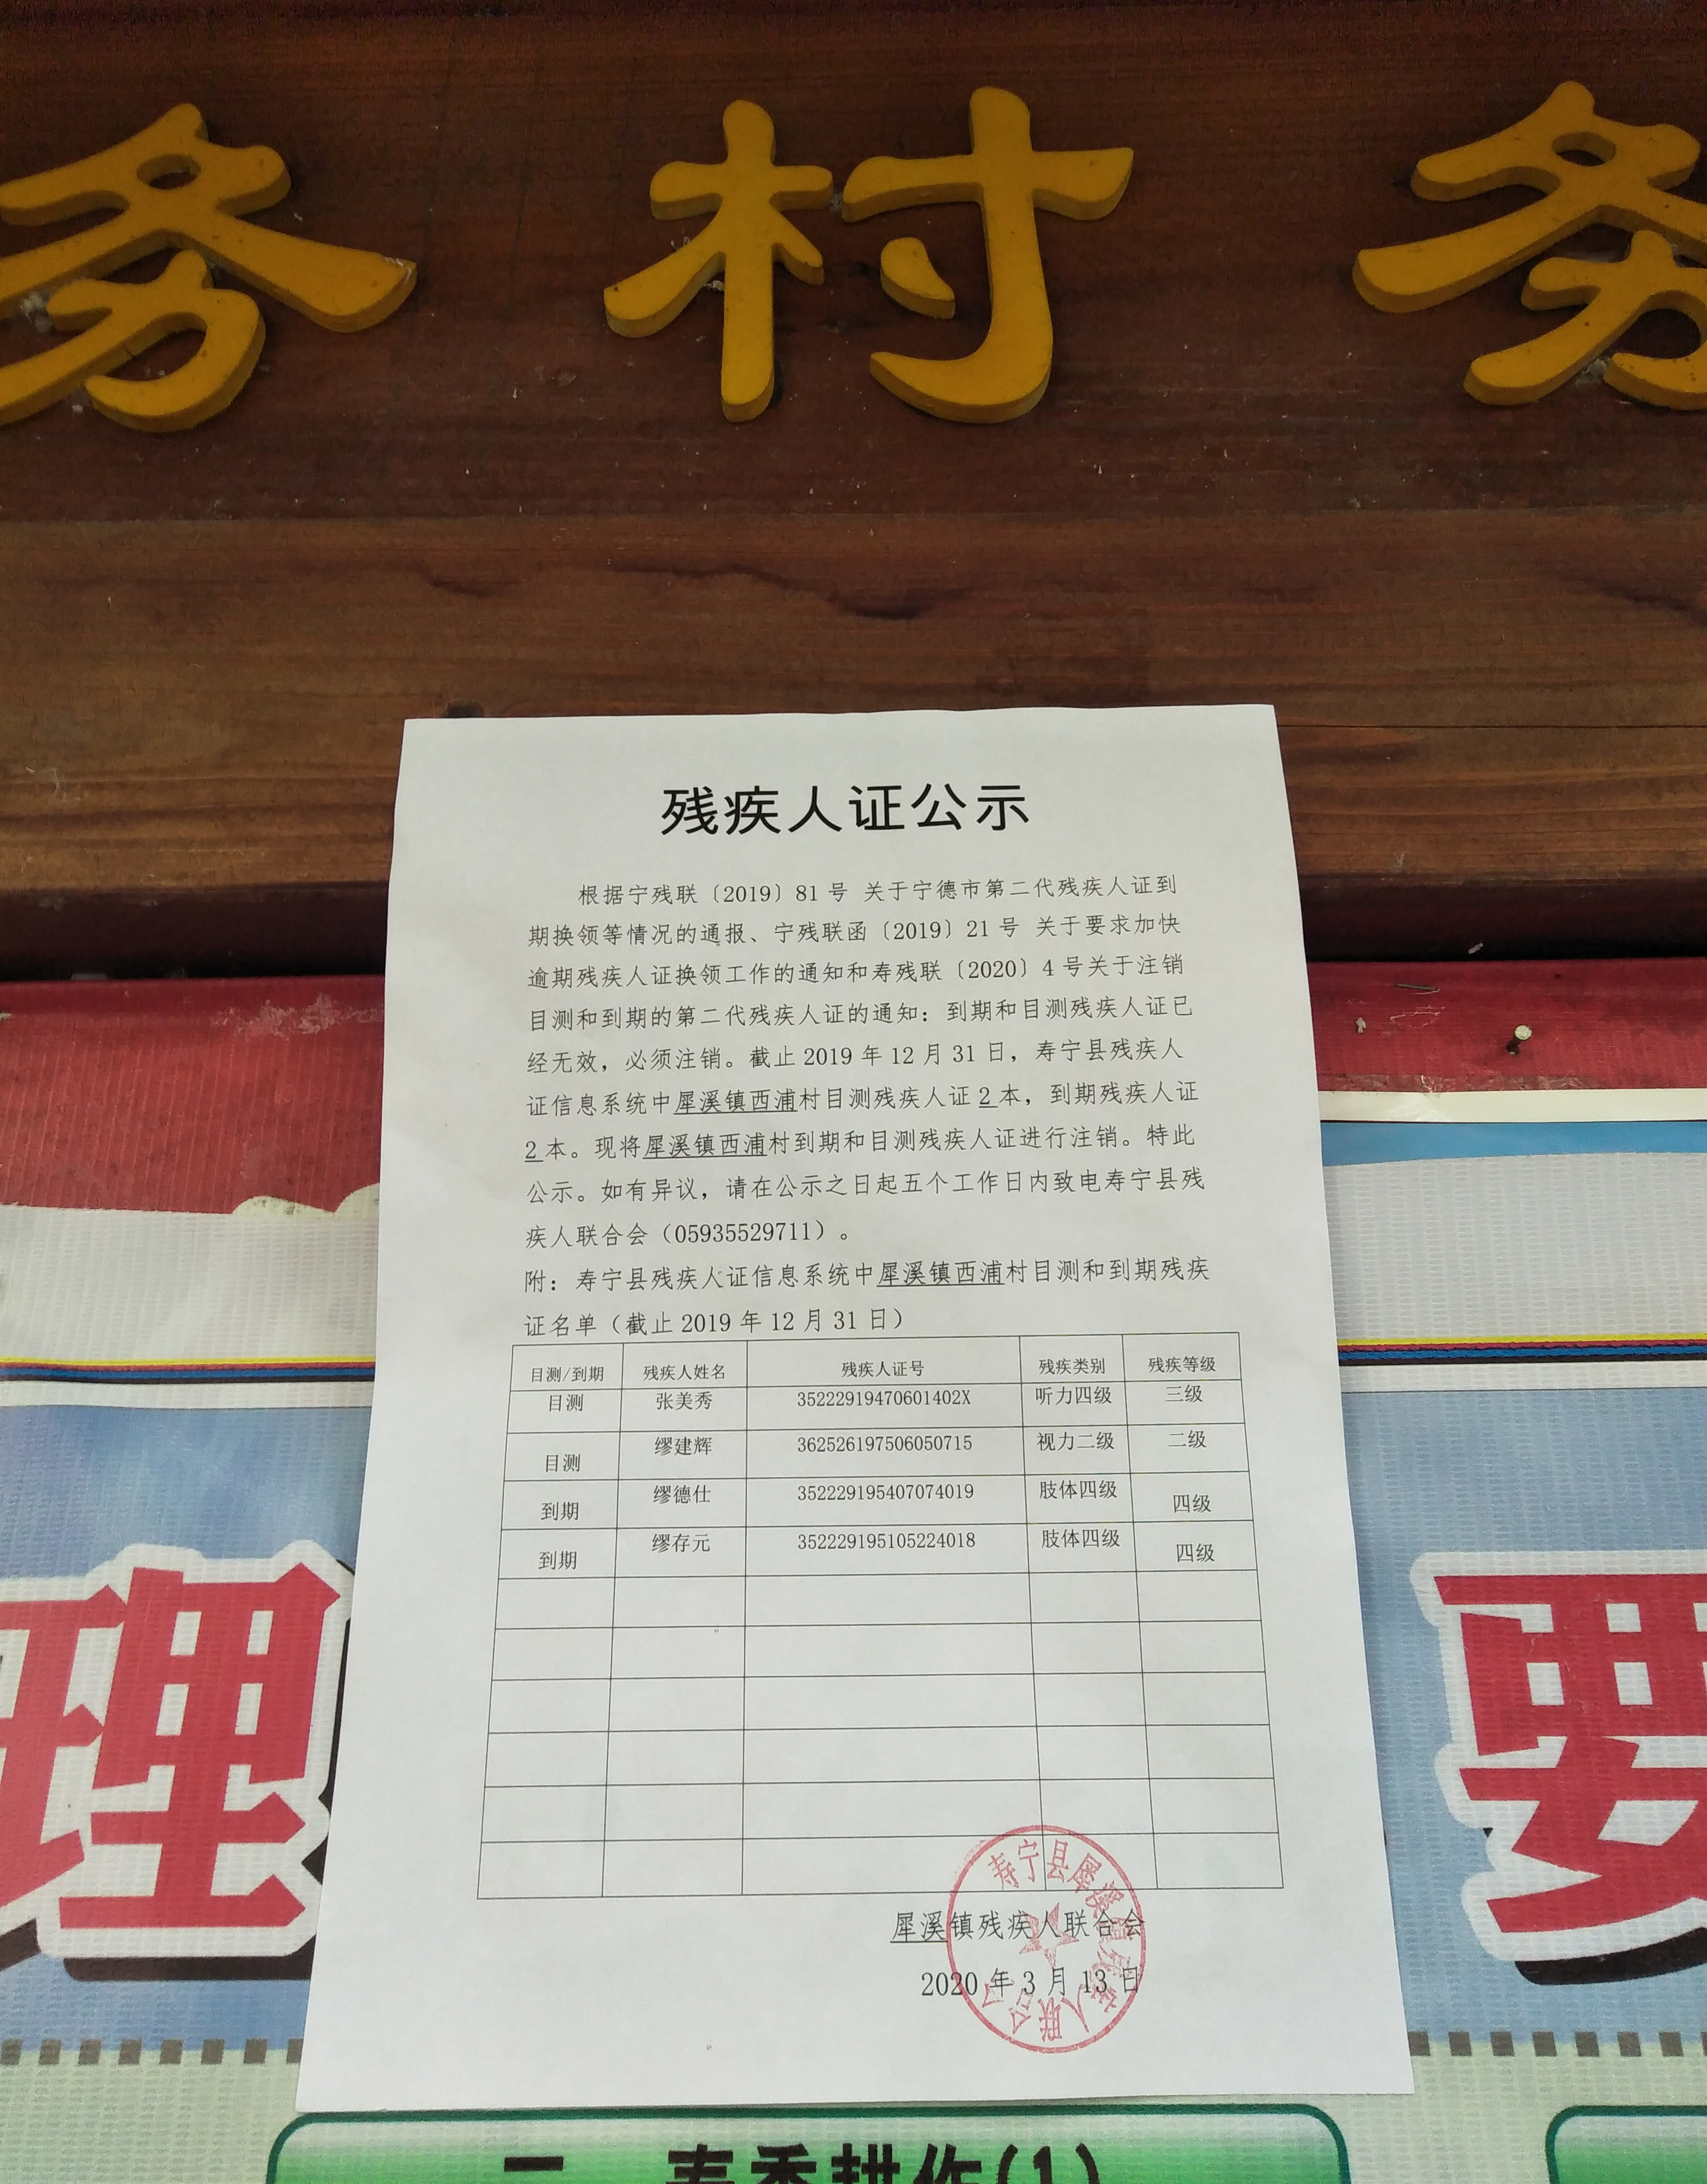 务 村 务
残疾人证公示
根据宁残联〔2019〕81号 关于宁德市第二代残疾人证到
期换领等情况的通报、宁残联函〔2019〕21号 关于要求加快
逾期残疾人证换领工作的通知和寿残联〔2020〕4号关于注销
目测和到期的第二代残疾人证的通知：到期和目测残疾人证已
经无效，必须注销。截止2019年12月31日，寿宁县残疾人
证信息系统中犀溪镇西浦村目测残疾人证2本，到期残疾人证
2本。现将犀溪镇西浦村到期和目测残疾人证进行注销。特此
公示。如有异议，请在公示之日起五个工作日内致电寿宁县残
疾人联合会（05935529711）。
附：寿宁县残疾人证信息系统中犀溪镇西浦村目测和到期残疾
证名单（截止2019年12月31日）
目测/到期 残疾人姓名 残疾人证号 残疾类别 残疾等级
目测 张美秀 35222919470601402X 听力四级 三级
目测 缪建辉 362526197506050715 视力二级 二级
到期 缪德仕 352229195407074019 肢体四级 四级
到期 缪存元 352229195105224018 肢体四级 四级
寿宁县犀溪镇残疾人联合会
犀溪镇残疾人联合会
2020年3月13日
理 要
二、春季耕作(1)